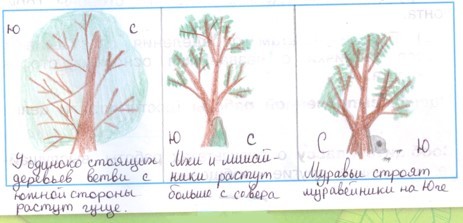 Ю С
Ю С
С Ю
У одиноко стоящих
деревьев ветви с
южной стороны
растут гуще.
Мхи и лишай-
ники растут
больше с севера
Муравьи строят
муравейники на Юге